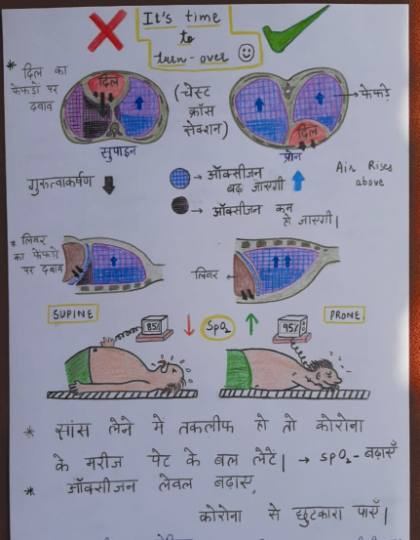 It's time
to
turn-over
* दिल का
फेफड़ो पर
दबाव
दिल
(चेस्ट
क्रॉस
सेक्शन)
फेफड़े
दिल
सुपाइन
प्रोन
Air Rises
above
गुरुत्वाकर्षण
→ ऑक्सीजन
बढ़ जाएगी
→ ऑक्सीजन कम
हो जाएगी।
* लिवर
का फेफड़ो
पर दबाव
लिवर
SUPINE
85%
SpO₂
95%
PRONE
* सांस लेने में तकलीफ हो तो कोरोना
के मरीज पेट के बल लेटें। → SPO₂ - बढ़ाएँ
* ऑक्सीजन लेवल बढ़ाए,
कोरोना से छुटकारा पाएँ।